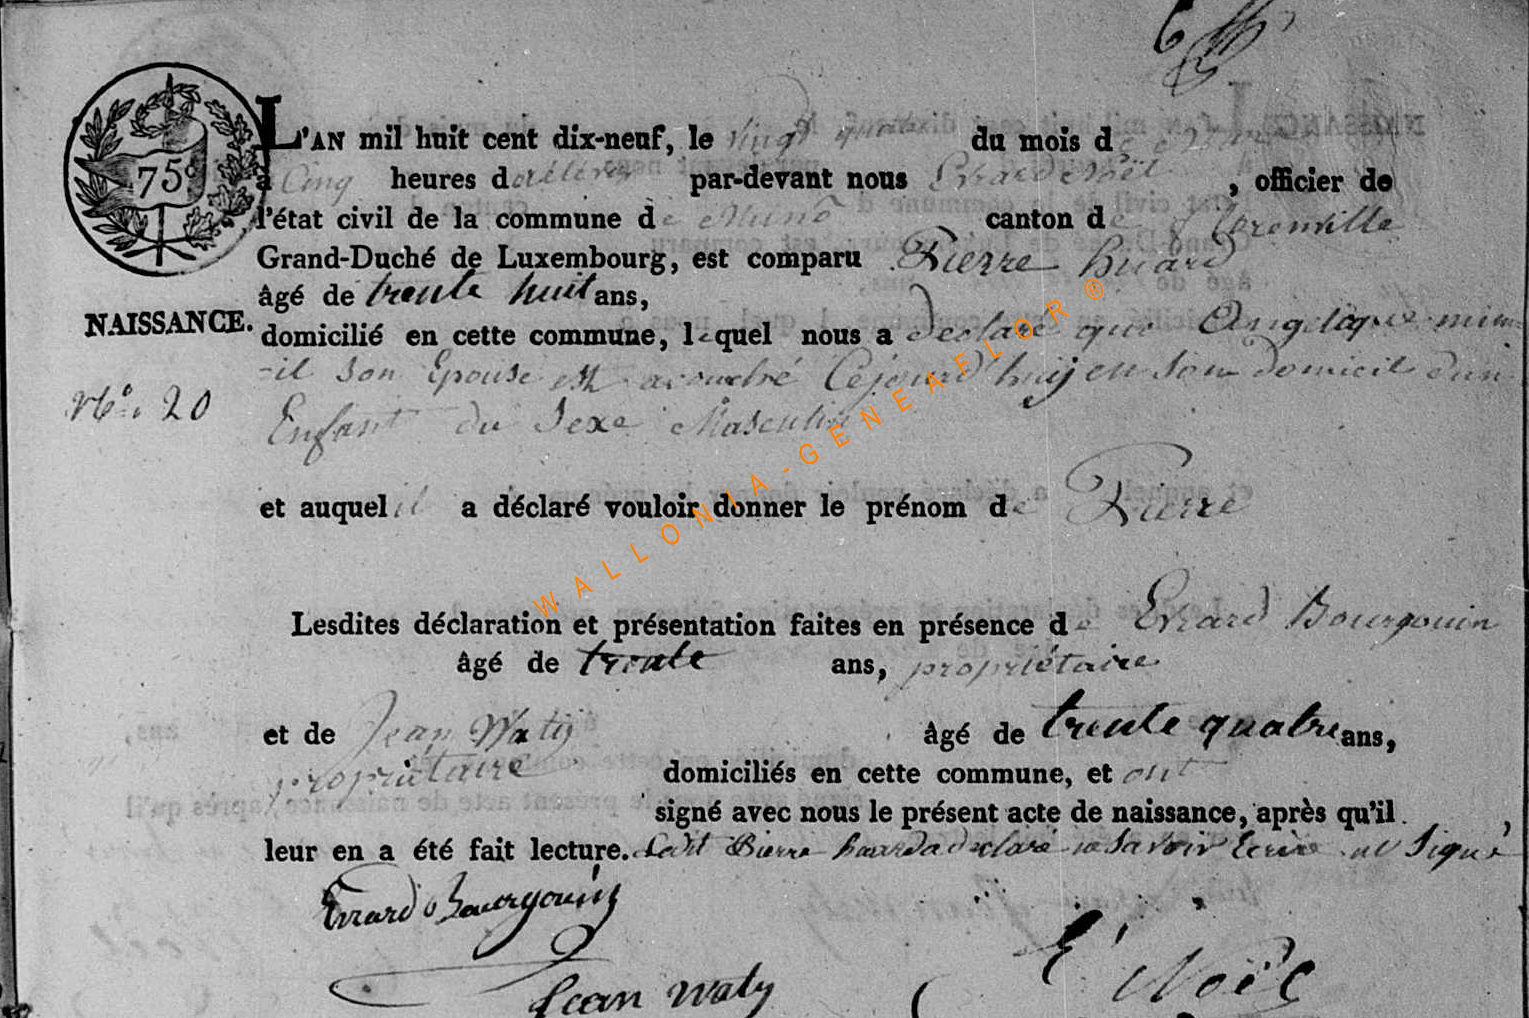 75c
L'AN mil huit cent dix-neuf, le vingt quatre du mois de
à Cinq heures d par-devant nous Evrard Noël, officier de
l'état civil de la commune de Muno canton de florenville
Grand-Duché de Luxembourg, est comparu Pierre huard
âgé de trente huit ans,
NAISSANCE.
domicilié en cette commune, lequel nous a déclaré que Angelique min
-il son Epouse est acouché Cejourd'huy en son domicil d'un
No. 20
Enfant du Sexe Masculin
et auquel il a déclaré vouloir donner le prénom de Pierre
Lesdites déclaration et présentation faites en présence de Evrard Bourgouin
âgé de trente ans, propriétaire
et de Jean Waty âgé de trente quatre ans,
propriétaire domiciliés en cette commune, et ont
signé avec nous le présent acte de naissance, après qu'il
leur en a été fait lecture. Ledit Pierre huard a déclaré ne Savoir Ecrire ni Signé
Evrard Bourgouin
Jean Waty
E Noël
WALLONIA-GENEAFLOR ®